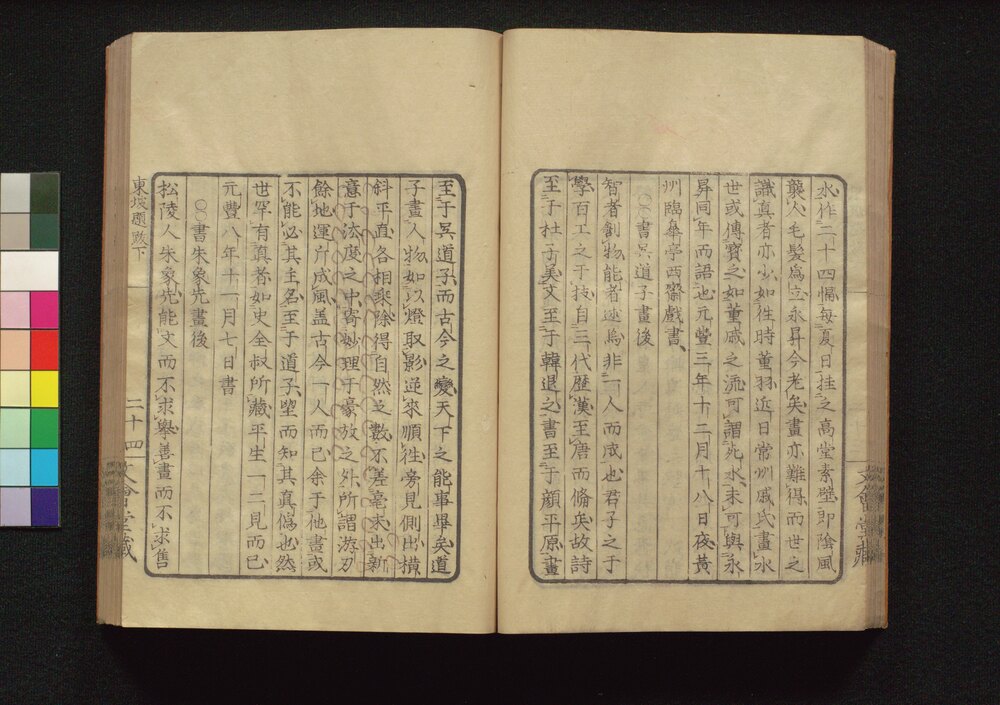 水作二十四幅每夏日挂之高堂素壁即陰風
襲人毛髮爲立永昇今老矣畫亦難得而世之
識真者亦少如徃時董羽近日常州戚氏畫水
世或傳寶之如董戚之流可謂死水未可與永
昇同年而語也元豐三年十二月十八日夜黃
州臨皐亭西齋戲書
〇〇書吳道子畫後
智者創物能者述焉非一人而成也君子之于
學百工之于技自三代歷漢至唐而備矣故詩
至于杜子美文至于韓退之書至于顏平原畫
至于吳道子而古今之變天下之能事畢矣道
子畫人物如以燈取影逆來順徃旁見側出橫
斜平直各相乘除得自然之數不差毫末出新
意于法度之中寄妙理于豪放之外所謂游刃
餘地運斤成風盖古今一人而已余于他畫或
不能必其主名至于道子望而知其真僞也然
世罕有真者如史全叔所藏平生一二見而已
元豐八年十一月七日書
〇〇書朱象先畫後
松陵人朱象先能文而不求舉善畫而不求售
東坡題跋下
二十四
文會堂藏
文會堂藏